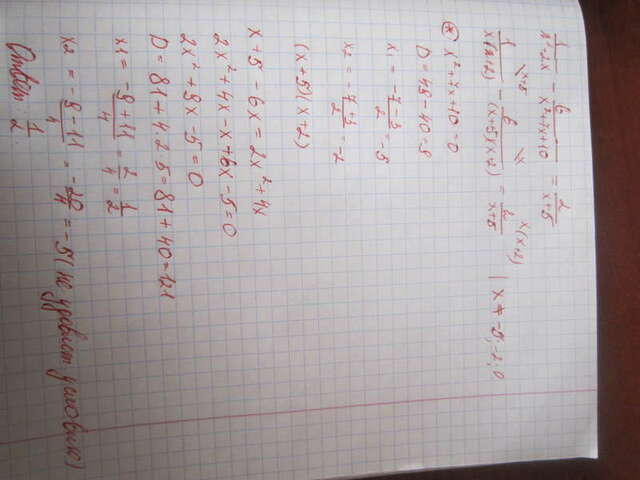 1/x²+2x − 6/x²+7x+10 = 2/x+5
1/x(x+2) \x+5 − 6/(x+5)(x+2) \x = 2/x+5 \x(x+2) | x ≠ -5, -2, 0
⊛ x²+7x+10=0
D = 49-40=9
x₁ = -7-3/2 = -5
x₂ = -7+3/2 = -2
(x+5)(x+2)
x+5-6x = 2x²+4x
2x²+4x-x+6x-5=0
2x²+9x-5=0
D = 81+4·2·5=81+40=121
x1 = -9+11/4 = 2/4 = 1/2
x2 = -9-11/4 = -20/4 = -5 (не удовлет условию)
Ответ 1/2.